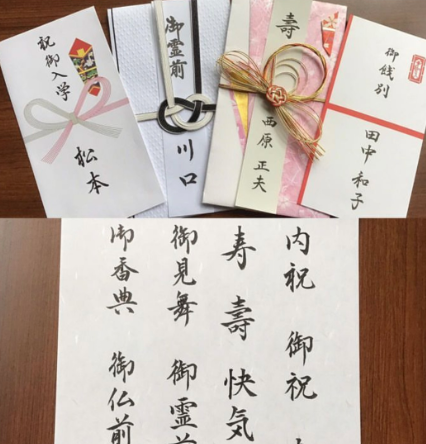 祝御入学
松本
御霊前
川口
壽
西原 正夫
御餞別
田中 和子
内祝 御祝
寿 壽 快気
御見舞 御霊前
御香典 御仏前